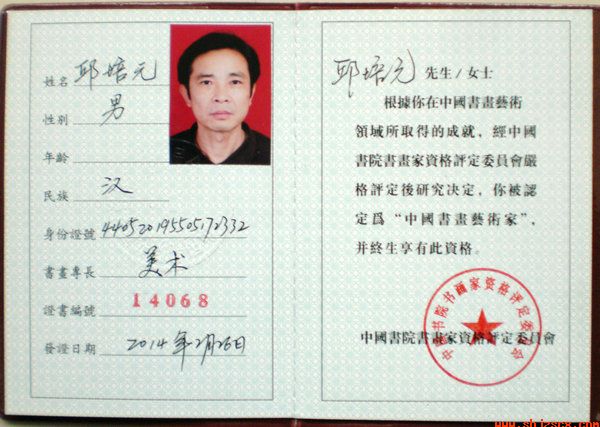 姓名 邱培元
性别 男
年齡
民族 汉
身份證號 440520195505172332
書畫專長 美术
證書編號 14068
發證日期 2014年2月26日
邱培元 先生/女士
根據你在中國書畫藝術
領域所取得的成就，經中國
書院書畫家資格評定委員會嚴
格評定後研究决定，你被認
定爲“中國書畫藝術家”，
并終生享有此資格。
中国书院书画家资格评定委员会
中國書院書畫家資格評定委員會